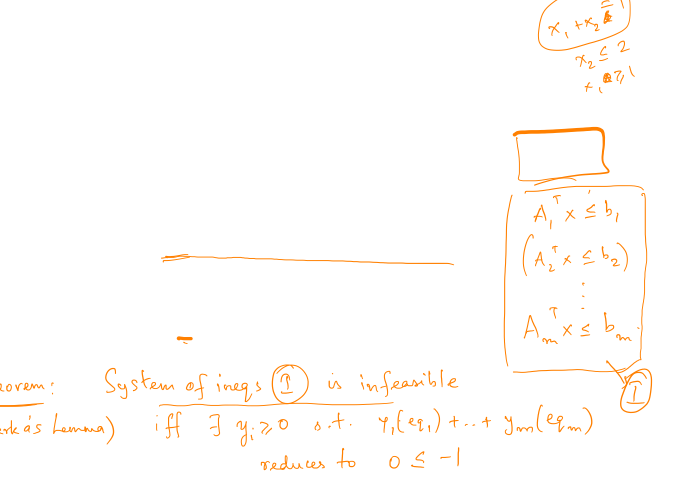 x₁ + x₂ ≤ 1
x₂ ≤ 2
x₁ ≥ 1
A₁ᵀ x ≤ b₁
(A₂ᵀ x ≤ b₂)
⋮
Aₘᵀ x ≤ bₘ
I
eorem: System of ineqs I is infeasible
rka's Lemma) iff ∃ yᵢ ≥ 0 s.t. y₁(eq₁) + .. + yₘ(eqₘ)
reduces to 0 ≤ -1